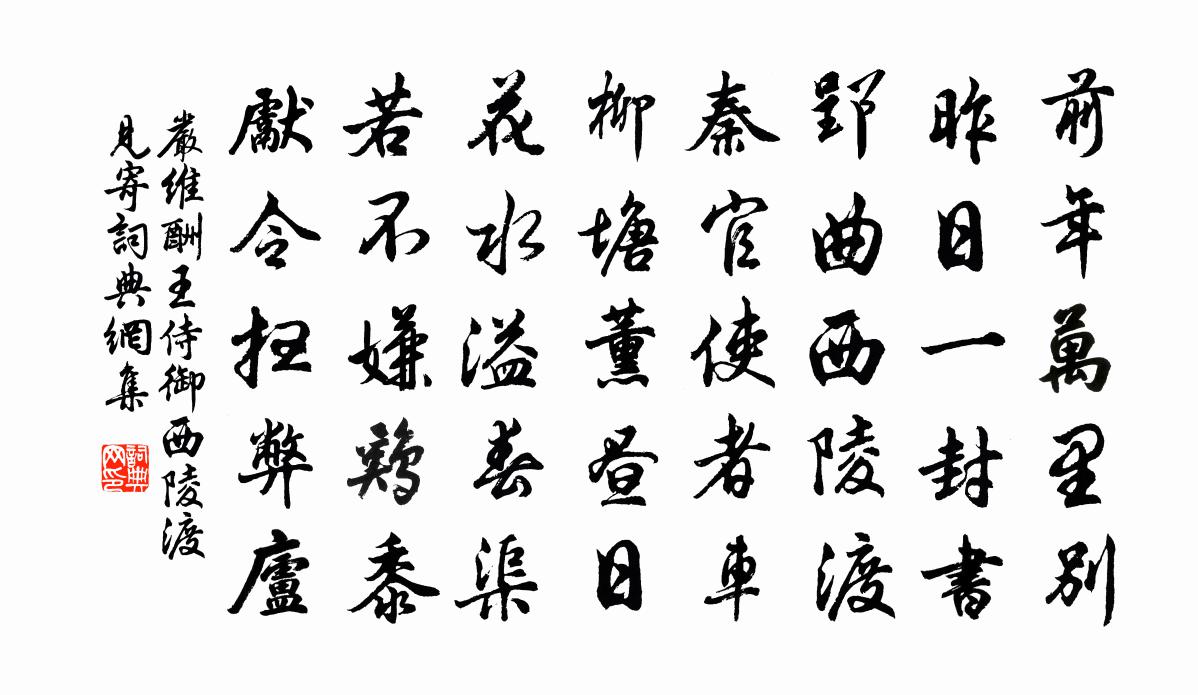 前年萬里別
昨日一封書
郢曲西陵渡
秦官使者車
柳塘薰晝日
花水溢春渠
若不嫌鷄黍
獻令扫弊廬
嚴維酬王侍御西陵渡
見寄詞典網集
詞典网印